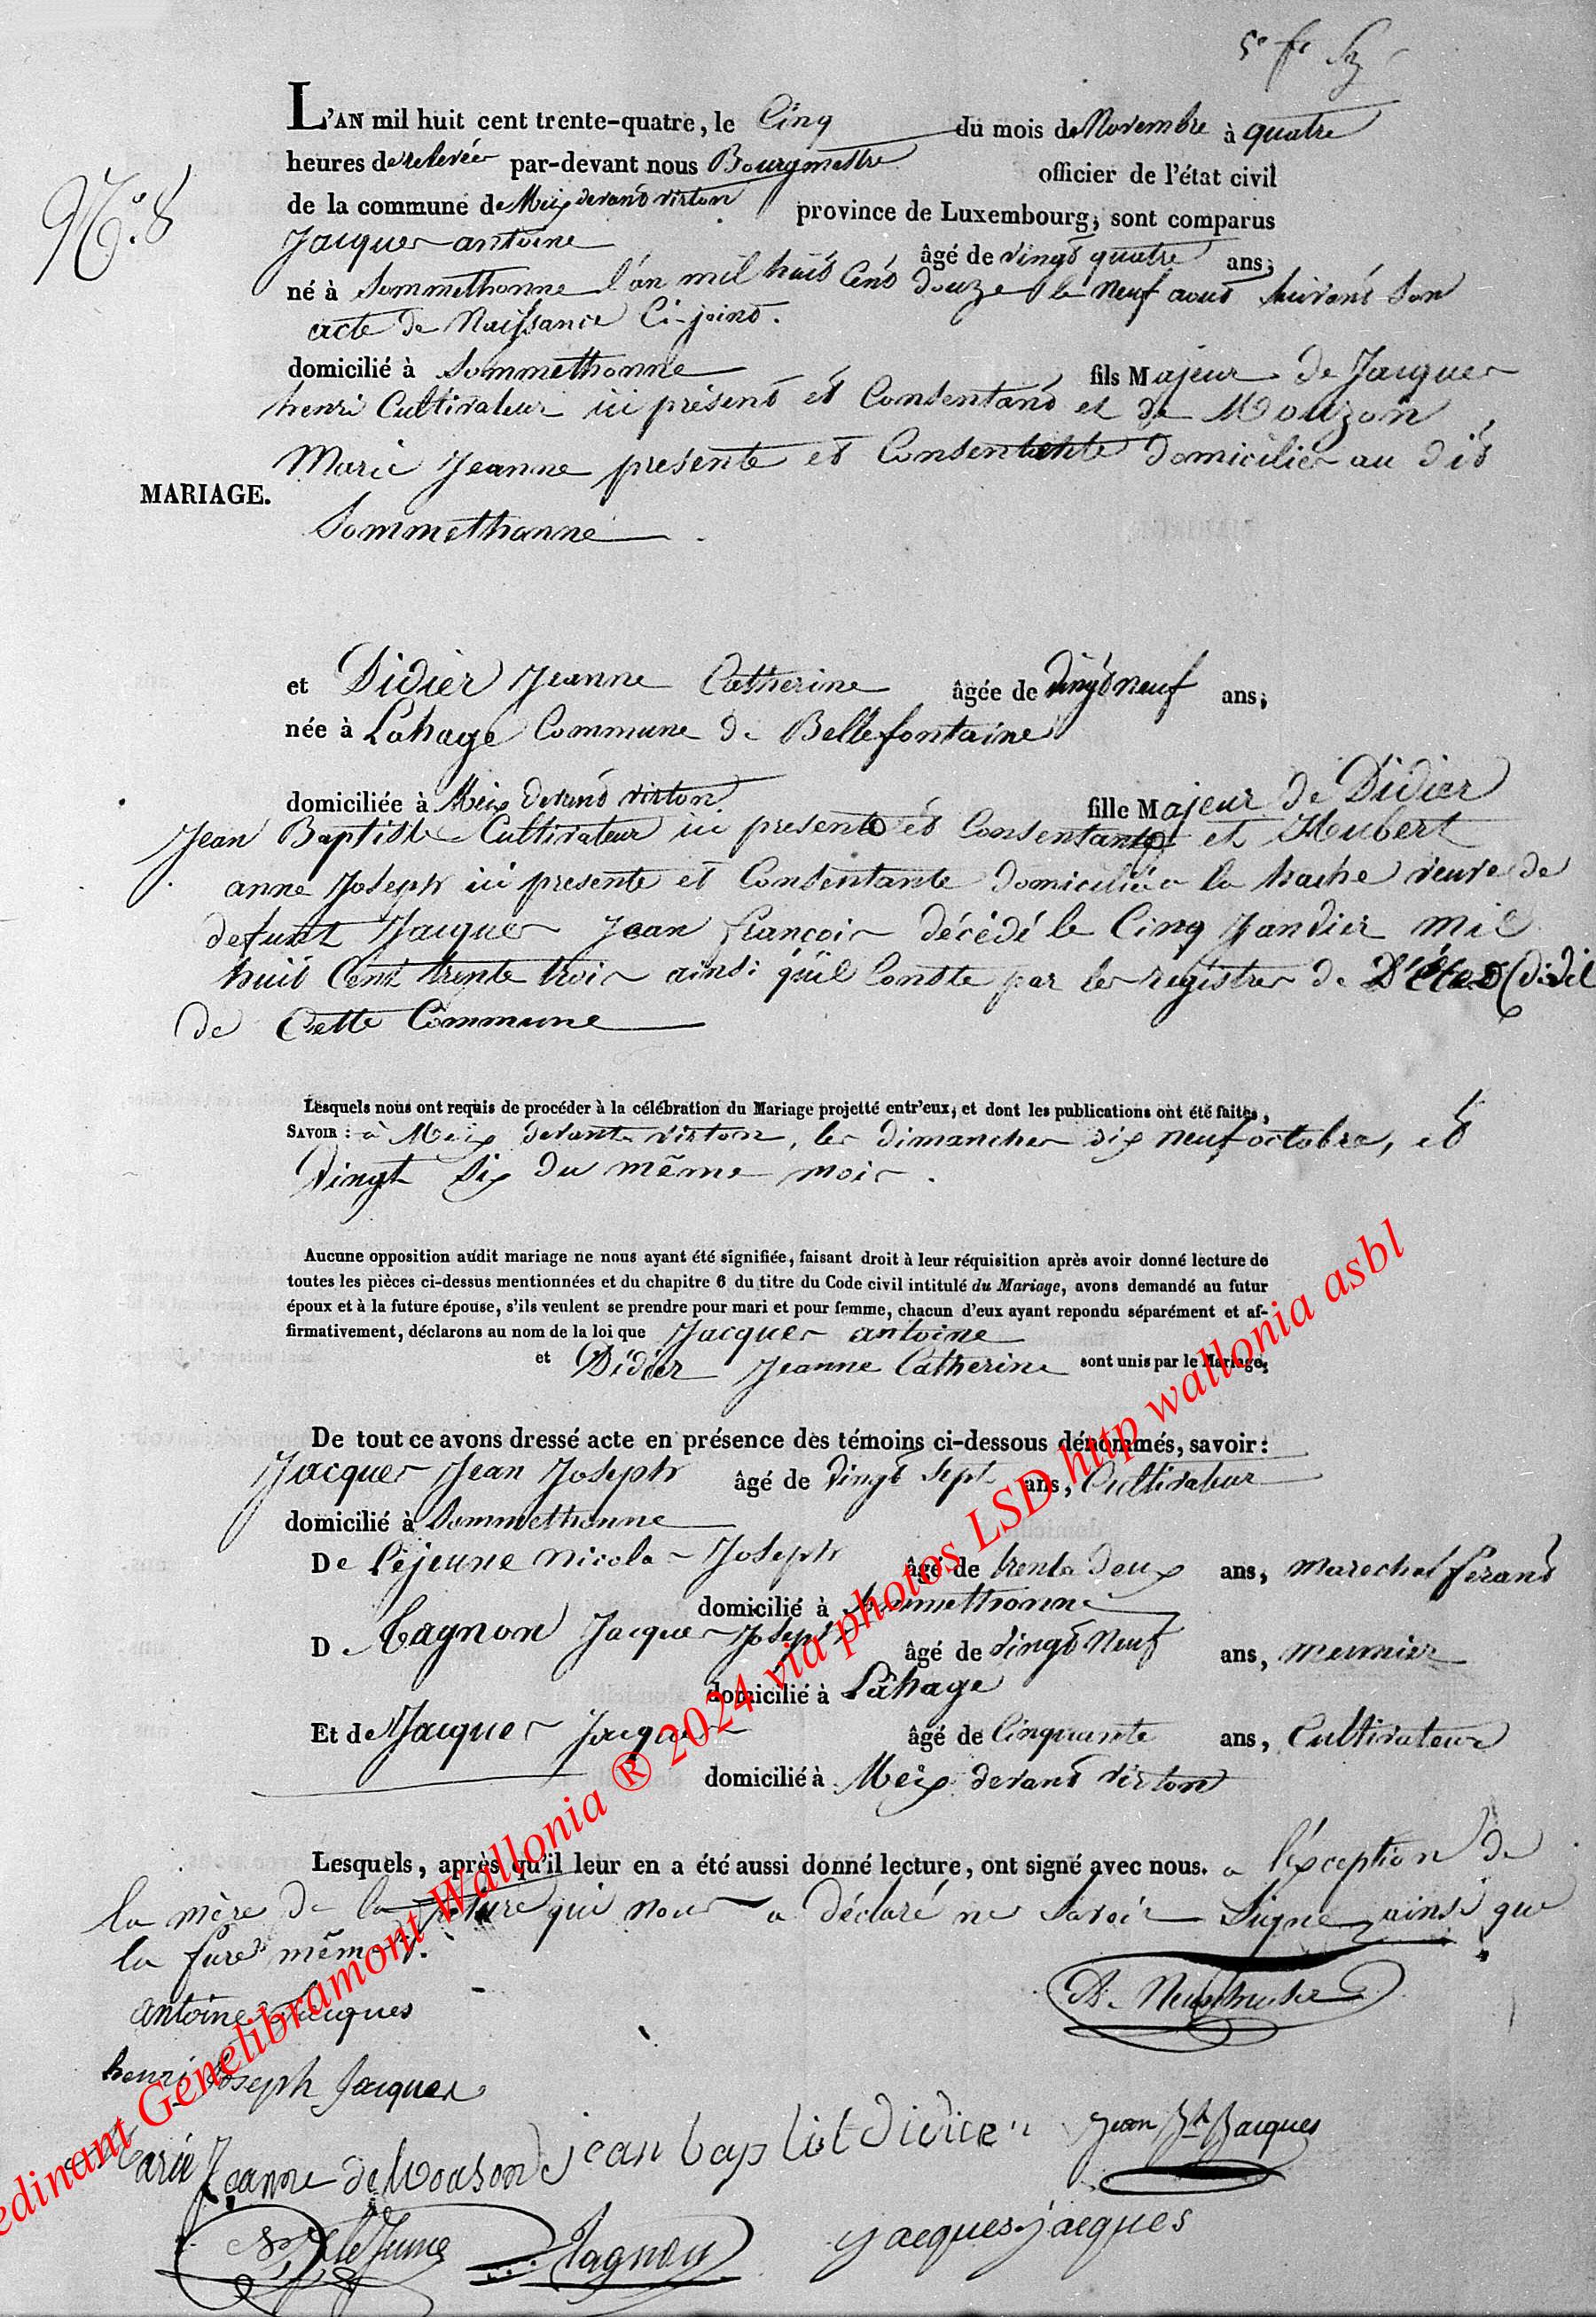 5e fe
L'AN mil huit cent trente-quatre, le Cinq du mois de Novembre à quatre
heures de relevée par-devant nous Bourgmestre officier de l'état civil
N.° 8
de la commune de Meix devant virton province de Luxembourg, sont comparus
Jacques antoine âgé de vingt quatre ans,
né à Sommethonne l'an mil huit Cent douze le neuf aout Suivant Son
acte de Naissance Ci-joint.
domicilié à Sommethonne fils Majeur de Jacques
henri Cultivateur ici présent et Consentant et de Mouzon
Marie Jeanne presente et Consentente domiciliés au dit
MARIAGE.
Sommethonne
et Didier Jeanne Catherine âgée de vingt neuf ans,
née à Lahage Commune de Bellefontaine
domiciliée à Meix devant virton fille Majeur de Didier
Jean Baptiste Cultivateur ici present et Consentant et Hubert
anne Joseph ici presente et Consentante domiciliée a la hache veuve de
defunt Jacques Jean françois décédé le Cinq Janvier mil
huit Cent trente trois ainsi qu'il Conste par les registres de D'état Civil
de Cette Commune
Lesquels nous ont requis de procéder à la célébration du Mariage projetté entr'eux, et dont les publications ont été faites,
SAVOIR : à Meix devant virton, les dimanches dix neuf octobre, et
vingt Six du même mois.
Aucune opposition audit mariage ne nous ayant été signifiée, faisant droit à leur réquisition après avoir donné lecture de
toutes les pièces ci-dessus mentionnées et du chapitre 6 du titre du Code civil intitulé du Mariage, avons demandé au futur
époux et à la future épouse, s'ils veulent se prendre pour mari et pour femme, chacun d'eux ayant repondu séparément et af-
firmativement, déclarons au nom de la loi que Jacques antoine
et Didier Jeanne Catherine sont unis par le Mariage.
De tout ce avons dressé acte en présence des témoins ci-dessous dénommés, savoir :
Jacques Jean Joseph âgé de vingt Sept ans, Cultivateur
domicilié à Sommethonne
De Léjeune nicola Joseph âgé de trente deux ans, marechal ferant
domicilié à Sommethonne
De Tagnon Jacques Joseph âgé de vingt neuf ans, meunier
domicilié à Lahage
Et de Jacques Jacques âgé de Cinquante ans, Cultivateur
domicilié à Meix devant virton
Lesquels, après qu'il leur en a été aussi donné lecture, ont signé avec nous. a l'éxception de
la mère de la future qui nous a déclaré ne Savoir Signe ainsi que
la fure même.
antoine Jacques
henri Joseph Jacques
Marie Jeanne de Mouson jean baptist didier Jean Bte Jacques
leJeune Tagnon jacques jacques
edinant Genelibramont Wallonia ® 2024 via photos LSD http wallonia asbl